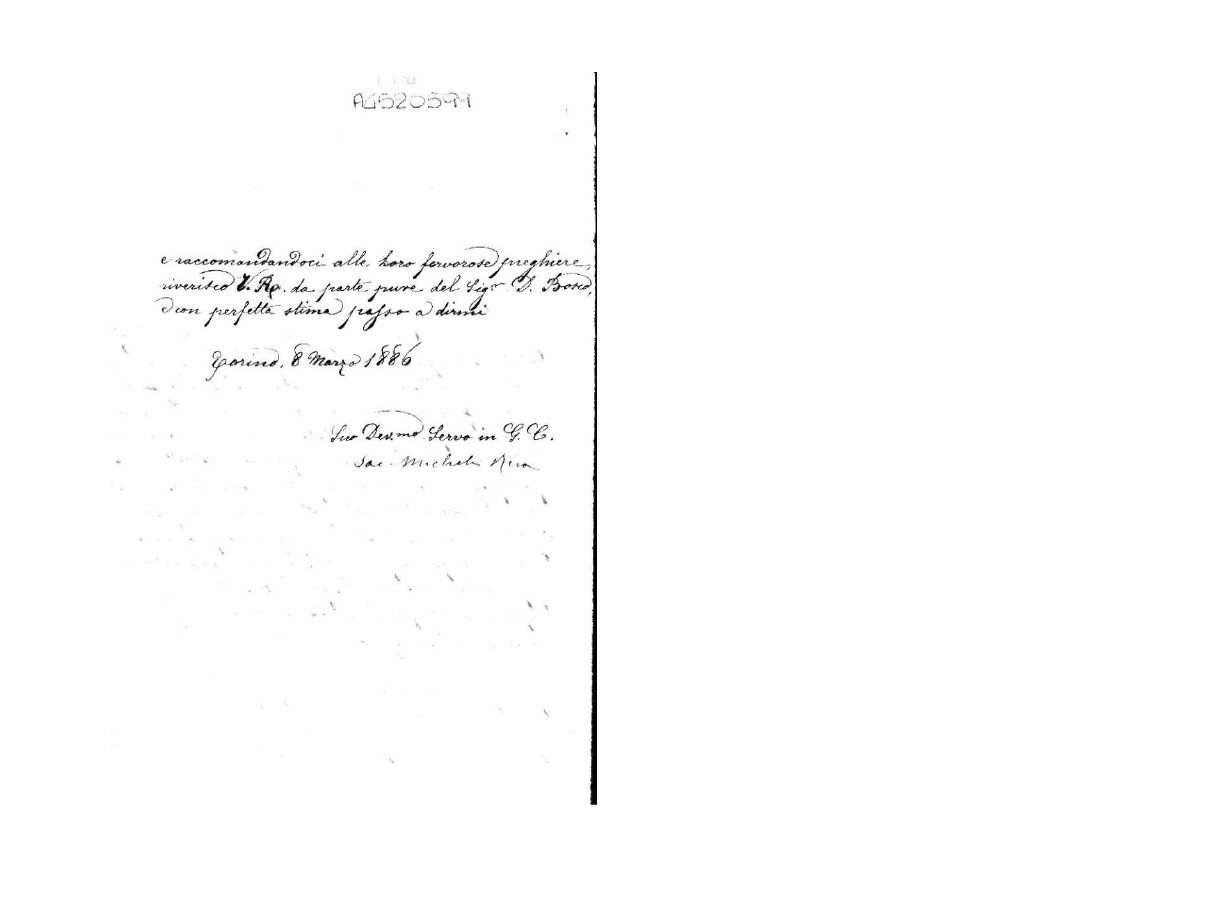 A4520599
e raccomandandoci alle loro fervorose preghiere,
riverisco V. Rx. da parte pure del Sigr. D. Bosco,
e con perfetta stima passo a dirmi
Torino, 8 Marzo 1886
Suo Dev.mo Servo in G. C.
Sac. Michele Rua